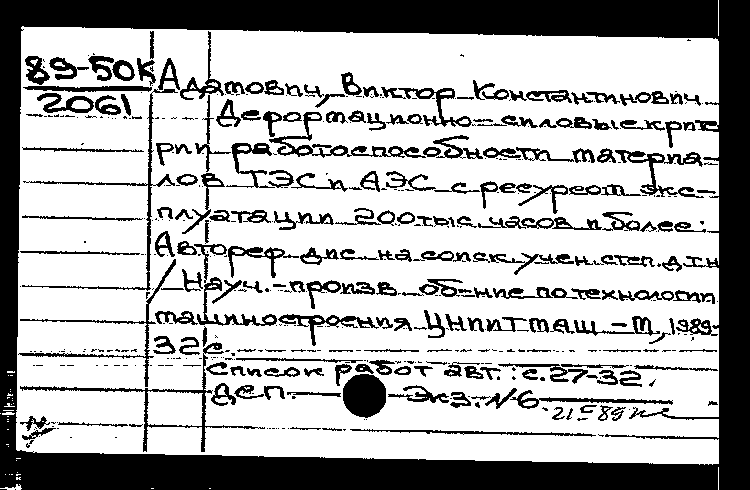 89-50К
2061
Адамович, Виктор Константинович
Деформационно-силовые крите
рии работоспособности материа-
лов ТЭС и АЭС с ресурсом экс-
плуатации 200тыс. часов и более:
Автореф. дис. на соиск. учен. степ. д.т.н
/ Науч.-произв. об-ние по технологии
машиностроения ЦНИИТМАШ - М., 1989-
32с.
список работ авт.: с.27-32.
ДСП. Экз. N 6